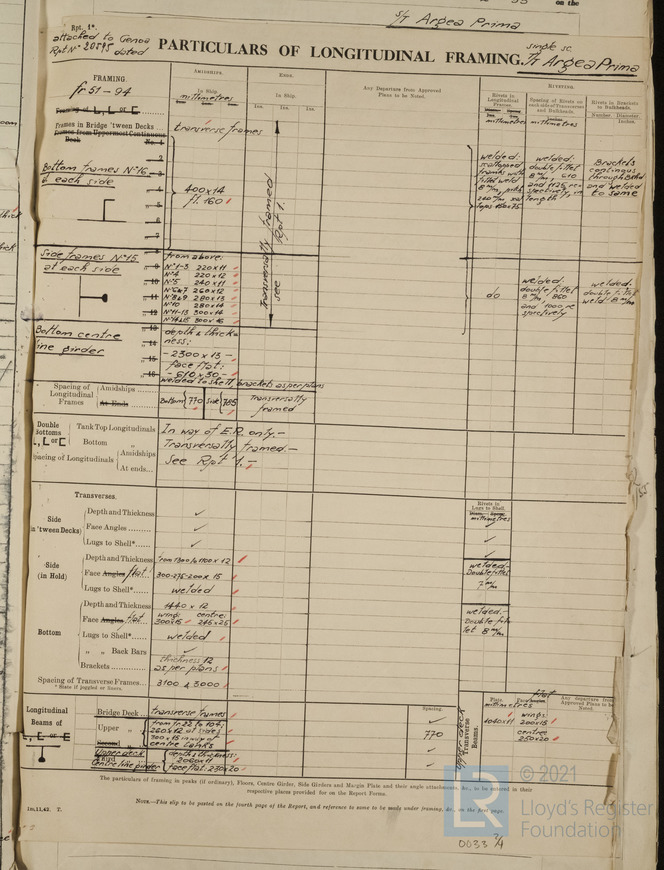 on the
S/T Argea Prima
Rpt. 4*.
attached to Genoa
Rpt Nº 20595 dated
PARTICULARS OF LONGITUDINAL FRAMING.
single sc.
T/ Argea Prima
FRAMING.
AMIDSHIPS.
ENDS.
Any Departure from Approved Plans to be Noted.
RIVETING.
fr 51 - 94
In Ship.
millimetres
In Ship.
Rivets in Longitudinal Frames.
millimetres
Spacing of Rivets on each side of Transverses and Bulkheads.
millimetres
Rivets in Brackets to Bulkheads.
Number. Diameter. Inches.
Framing of L, L, or C
Frames in Bridge 'tween Decks
transverse frames
Frames from Uppermost Continuous Deck No. 1
Bottom frames Nº 16
at each side
400x14
fl. 160
Transversally framed
see Rpt 1.
welded.
scalloped
fillet weld
8 m/m
welded.
double fillet
8 m/m, 610
and 1125 re
spectively, in
length
Brackets
continous
through Bkhd
and welded
to same
Side frames Nº 15
at each side
from above:
Nº 1-3 220x11
Nº 4 220x12
Nº 5 240x11
Nº 6&7 260x12
Nº 8&9 280x13
Nº 10 280x14
Nº 11-13 300x14
Nº 14&15 300x15
do
welded.
double fillet
8 m/m, 860
and 1000 re
spectively
welded.
double fillet
weld 8 m/m
Bottom centre
line girder
depth & thick-
ness:
- 2300 x 13 -
face flat:
- 610 x 30 -
welded to shell brackets as per plans
Spacing of Longitudinal Frames
Amidships
At Ends
Bottom 770 Side 785
Transversally
framed
Double Bottoms
L, L or C
Tank Top Longitudinals
Bottom „
Spacing of Longitudinals
Amidships
At ends...
In way of E.R. only.-
Transversally framed.-
See Rpt 1.-
Transverses.
Rivets in Lugs to Shell.
millimetres
Side (in 'tween Decks)
Depth and Thickness
Face Angles
Lugs to Shell*
Side (in Hold)
Depth and Thickness
from 1300 to 1100 x 12
Face Angles flat
300-275-200 x 15
Lugs to Shell*
welded
welded-
Double fillet
7 m/m
Bottom
Depth and Thickness
1440 x 12
Face Angles flat
wing: centre:
300x15 245x25
Lugs to Shell*
welded
welded.-
Double fil-
let 8 m/m
„ „ Back Bars
Brackets
thickness 12
as per plans
Spacing of Transverse Frames
3100 & 3000
* State if joggled or liners.
Longitudinal Beams of
L, L or C
Bridge Deck
transverse frames
Upper „
from fr 22 to 101;
260x12 at sides
300x15 in way of
centre tanks
Second „
Upper deck
Centre line girder
depth & thickness:
2060x11
Face flat: 230x20
Spacing.
770
upper deck
Transverse Beams.
Plate.
millimetres
1040x11
flat
wings:
200x15
centre
250x20
Any Departure from Approved Plans to be Noted.
The particulars of framing in peaks (if ordinary), Floors, Centre Girder, Side Girders and Margin Plate and their angle attachments, &c., to be entered in their
respective places provided for on the Report Forms.
NOTE.—This slip to be posted on the fourth page of the Report, and reference to same to be made under framing, &c., on the first page.
1m,11,42. T.
0033 2/4
© 2021
Lloyd's Register
Foundation